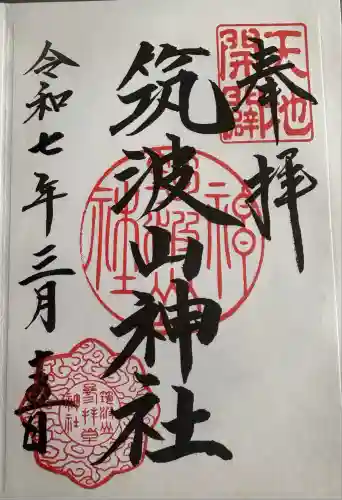 奉拝
天地開闢
筑波山神社
筑波山神社
令和七年三月十五日
筑波山神社参拝章